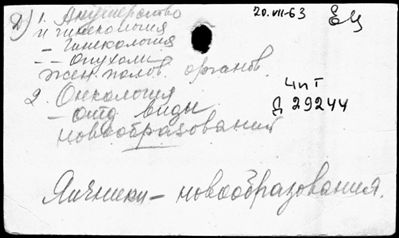 2) 1. Акушерство
и гинекология
- Гинекология
-- опухоли
жен. полов. органов.
2. Онкология
- отд. виды
новообразования
20.VII-63
Ец
Чит
Д 29244
Яичники - новообразования.